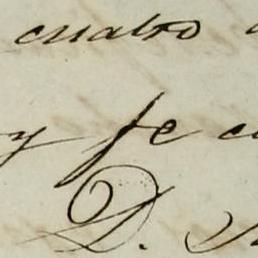 cuatro
y fe
D.